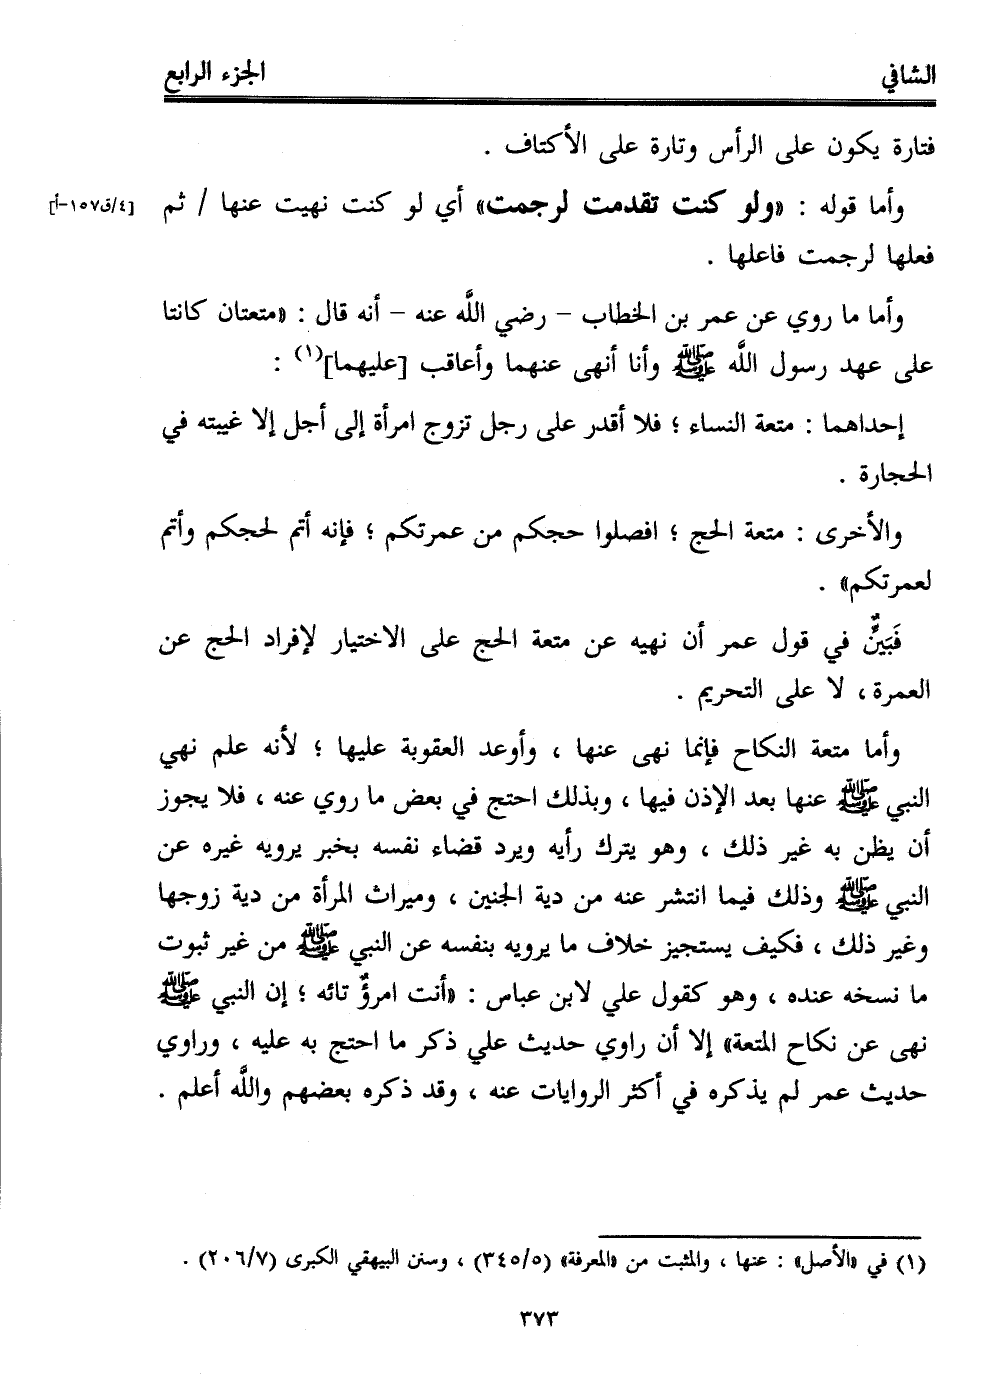 الشافي الجزء الرابع
فتارة يكون على الرأس وتارة على الأكتاف .
وأما قوله : «ولو كنت تقدمت لرجمت» أي لو كنت نهيت عنها / ثم [٤/ق١٥٧-أ]
فعلها لرجمت فاعلها .
وأما ما روي عن عمر بن الخطاب – رضي اللَّه عنه – أنه قال : «متعتان كانتا
على عهد رسول اللَّه ﷺ وأنا أنهى عنهما وأعاقب [عليهما](١) :
إحداهما : متعة النساء ؛ فلا أقدر على رجل تزوج امرأة إلى أجل إلا غيبته في
الحجارة .
والأخرى : متعة الحج ؛ افصلوا حجكم من عمرتكم ؛ فإنه أتم لحجكم وأتم
لعمرتكم» .
فَبَيِّنٌ في قول عمر أن نهيه عن متعة الحج على الاختيار لإفراد الحج عن
العمرة ، لا على التحريم .
وأما متعة النكاح فإنما نهى عنها ، وأوعد العقوبة عليها ؛ لأنه علم نهي
النبي ﷺ عنها بعد الإذن فيها ، وبذلك احتج في بعض ما روي عنه ، فلا يجوز
أن يظن به غير ذلك ، وهو يترك رأيه ويرد قضاء نفسه بخبر يرويه غيره عن
النبي ﷺ وذلك فيما انتشر عنه من دية الجنين ، وميراث المرأة من دية زوجها
وغير ذلك ، فكيف يستجيز خلاف ما يرويه بنفسه عن النبي ﷺ من غير ثبوت
ما نسخه عنده ، وهو كقول علي لابن عباس : «أنت امرؤٌ تائه ؛ إن النبي ﷺ
نهى عن نكاح المتعة» إلا أن راوي حديث علي ذكر ما احتج به عليه ، وراوي
حديث عمر لم يذكره في أكثر الروايات عنه ، وقد ذكره بعضهم واللَّه أعلم .
(١) في «الأصل» : عنها ، والمثبت من «المعرفة» (٣٤٥/٥) ، وسنن البيهقي الكبرى (٢٠٦/٧) .
٣٧٣